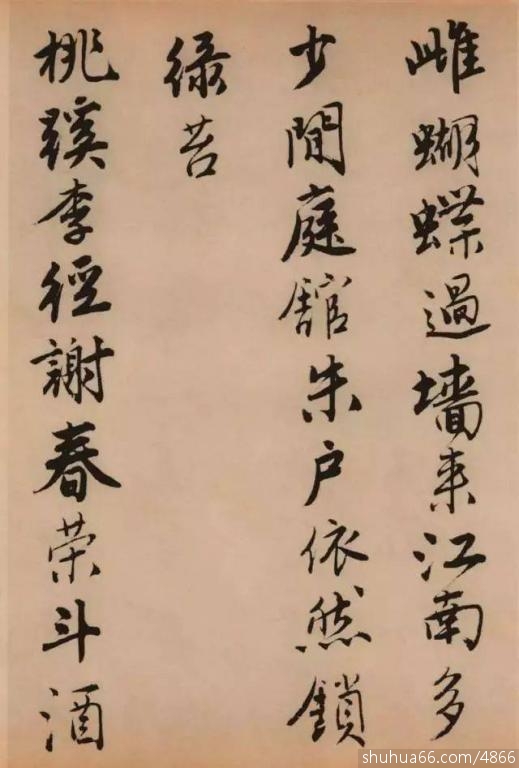 雌蝴蝶過墻来江南多
少閒庭舘朱户依然鎖
緑苔
桃蹊李徑謝春荣斗酒
shuhua66.com/4866